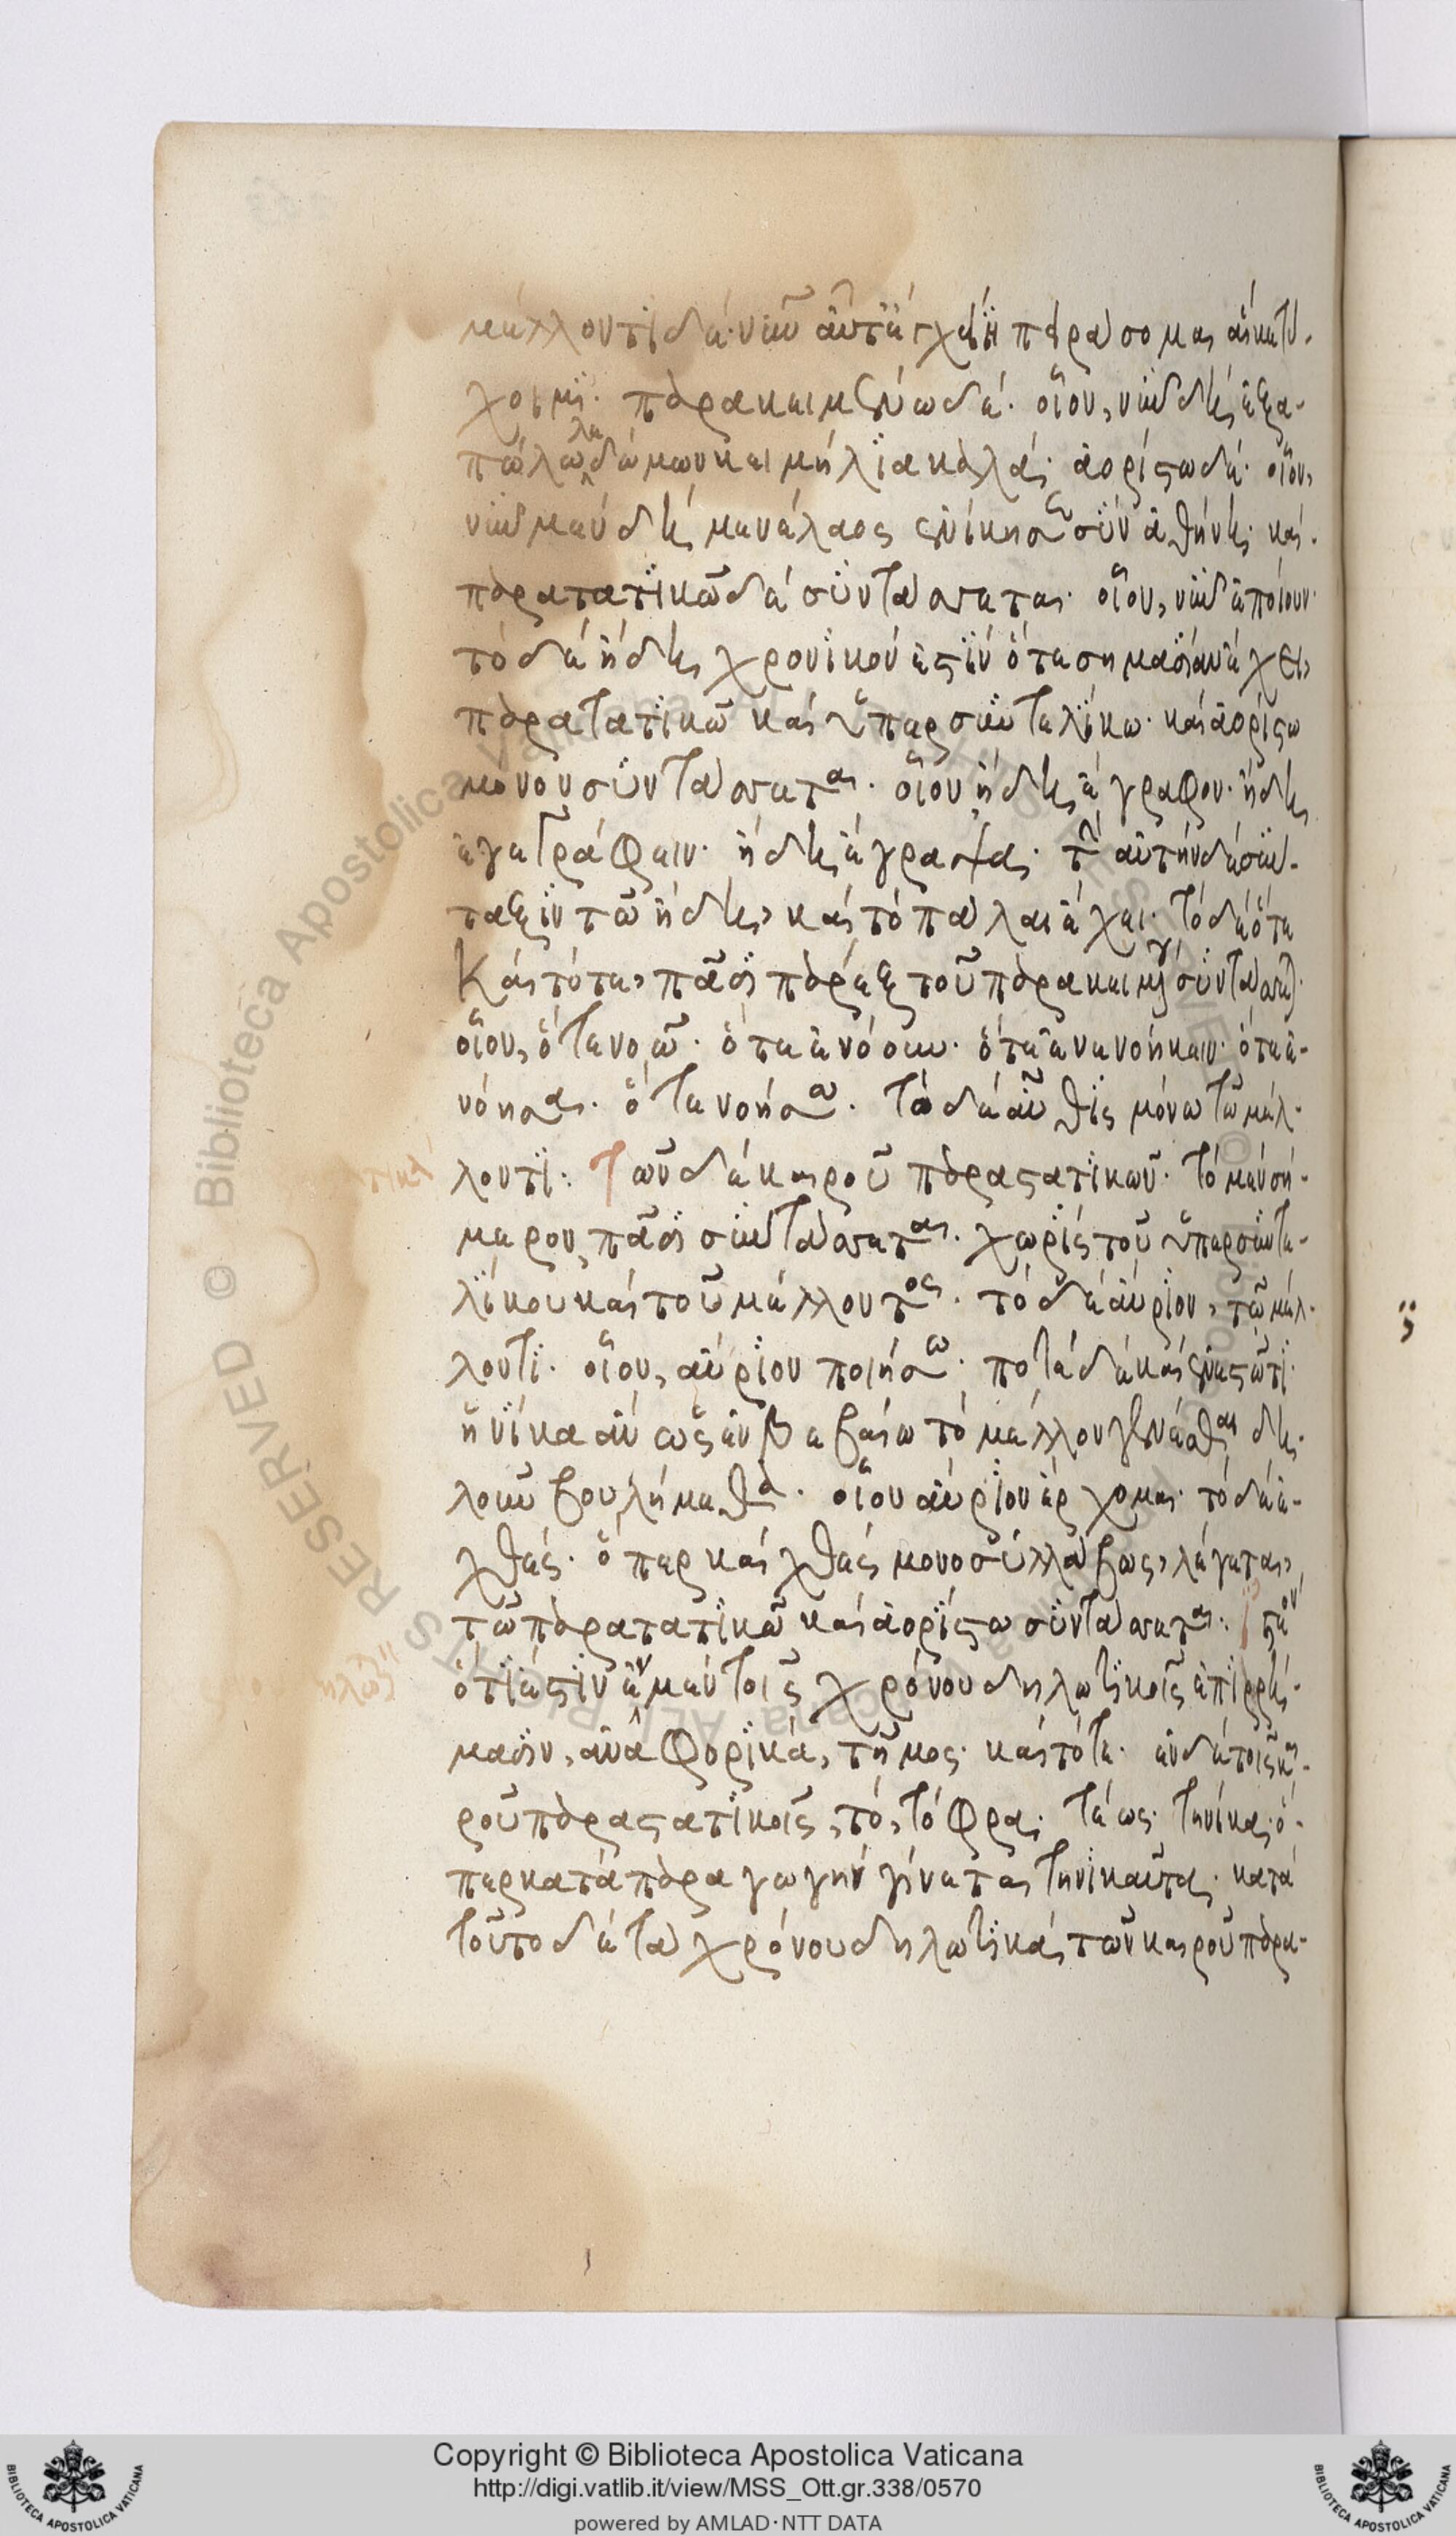 μέλλοντι δέ· νῦν αὖτ' ἔγχεϊ πειράσομαι αἴ κε τύ-
χοιμι· παρακειμένω δέ· οἷον, νῦν δὴ ἐξα-
πόλωλε δόμων κειμήλια καλά· ἀορίστω δέ· οἷον,
νῦν μὲν δὴ μενέλαος ἐνίκησε σὺν ἀθήνη· καὶ
παρατατικῶ δὲ συντάσσεται· οἷον, νῦν δ' ἐποίουν·
τὸ δὲ ἤδη χρονικόν ἐστιν ὅτε σημασίαν ἔχει,
παρατατικῶ καὶ ὑπερσυντελίκω· καὶ ἀορίστω
μόνον συντάσσεται· οἷον ἤδη ἔγραφον· ἤδη
ἐγεγράφειν· ἤδη ἔγραψα· τὴν αὐτὴν δὲ σύν-
ταξιν τῶ ἤδη, καὶ τὸ πάλαι ἔχει· τὸ δὲ ὅτε
καὶ τότε, πᾶσι παρὲξ τοῦ παρακειμένου συντάσσεται·
οἷον, ὅτε νοῶ· ὅτε ἐνόουν· ὅτε ἐνενοήκειν· ὅτε ἐ-
νόησα· ὅτε νοήσω· τὸ δὲ αὖθις μόνω τῶ μέλ-
λοντι: Τῶν δὲ καιροῦ παραστατικῶν· τὸ μὲν σή-
μερον πᾶσι συντάσσεται· χωρὶς τοῦ ὑπερσυντε-
λίκου καὶ τοῦ μέλλοντος· τὸ δὲ αὔριον, τῶ μέλ-
λοντι· οἷον, αὔριον ποιήσω· ποτὲ δὲ καὶ ἐνεστῶτι·
ἡνίκα ἂν ὡς ἐν βεβαίω τὸ μέλλον γενέσθαι δη-
λοῦν βουλήμεθα· οἷον αὔριον ἔρχομαι· τὸ δὲ ἐ-
χθές· ὅπερ καὶ χθὲς μονοσυλλάβως, λέγεται,
τῶ παρατατικῶ καὶ ἀορίστω συντάσσεται: Ἰστέον
ὅτι ἐστὶν ἐν μὲν τοῖς χρόνου δηλωτικοῖς ἐπιρρή-
μασιν, ἀναφορικά, τῆμος· καὶ τότε· ἐν δὲ τοῖς και-
ροῦ παραστατικοῖς, τὸ, τόφρα· τέως· τηνίκα· ὅ-
περ κατὰ παραγωγὴν γίνεται τηνικαῦτα· κατὰ
τοῦτο δὲ τὰ χρόνου δηλωτικὰ τῶν καιροῦ παρα-
Copyright © Biblioteca Apostolica Vaticana
http://digi.vatlib.it/view/MSS_Ott.gr.338/0570
powered by AMLAD·NTT DATA